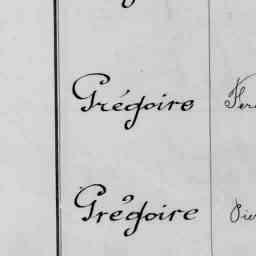 Grégoire
Grégoire